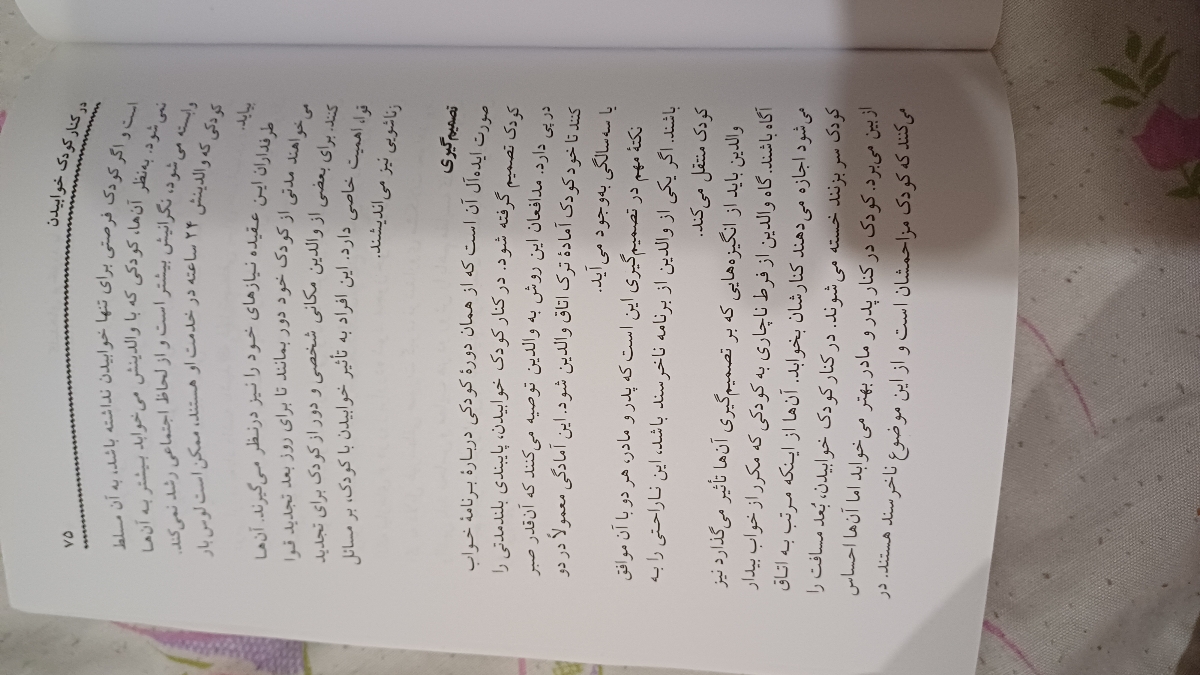 در کنار کودک خوابیدن
۷۵
است و اگر کودک فرصتی برای تنها خوابیدن نداشته باشد، به آن مسلط
نمی‌شود. به‌نظر آن‌ها، کودکی که با والدینش می‌خوابد، بیشتر به آن‌ها
وابسته می‌شود، نگرانیش بیشتر است و از لحاظ اجتماعی رشد نمی‌کند.
کودکی که والدینش ۲۴ ساعته در خدمت او هستند، ممکن است لوس بار
بیاید.
طرفداران این عقیده نیازهای خود را نیز درنظر می‌گیرند. آن‌ها
می‌خواهند مدتی از کودک خود دور بمانند تا برای روز بعد تجدید قوا
کنند. برای بعضی از والدین مکانی شخصی و دور از کودک برای تجدید
قوا، اهمیت خاصی دارد. این افراد به تأثیر خوابیدن با کودک، بر مسائل
زناشویی نیز می‌اندیشند.
تصمیم‌گیری
صورت ایده‌آل آن است که از همان دورهٔ کودکی دربارهٔ برنامهٔ خواب
کودک تصمیم گرفته شود. در کنار کودک خوابیدن، پایبندی بلندمدتی را
در پی دارد. مدافعان این روش به والدین توصیه می‌کنند که آن‌قدر صبر
کنند تا خود کودک آمادهٔ ترک اتاق والدین شود. این آمادگی معمولاً در دو
یا سه سالگی به‌وجود می‌آید.
نکتهٔ مهم در تصمیم‌گیری این است که پدر و مادر، هر دو با آن موافق
باشند. اگر یکی از والدین از برنامه ناخرسند باشد، این ناراحتی را به
کودک منتقل می‌کند.
والدین باید از انگیزه‌هایی که بر تصمیم‌گیری آن‌ها تأثیر می‌گذارد نیز
آگاه باشند. گاه والدین از فرط ناچاری به کودکی که مکرر از خواب بیدار
می‌شود اجازه می‌دهند کنارشان بخوابد. آن‌ها از اینکه مرتب به اتاق
کودک سر بزنند خسته می‌شوند. در کنار کودک خوابیدن، بُعد مسافت را
از بین می‌برد. کودک در کنار پدر و مادر بهتر می‌خوابد اما آن‌ها احساس
می‌کنند که کودک مزاحمشان است و از این موضوع ناخرسند هستند. در